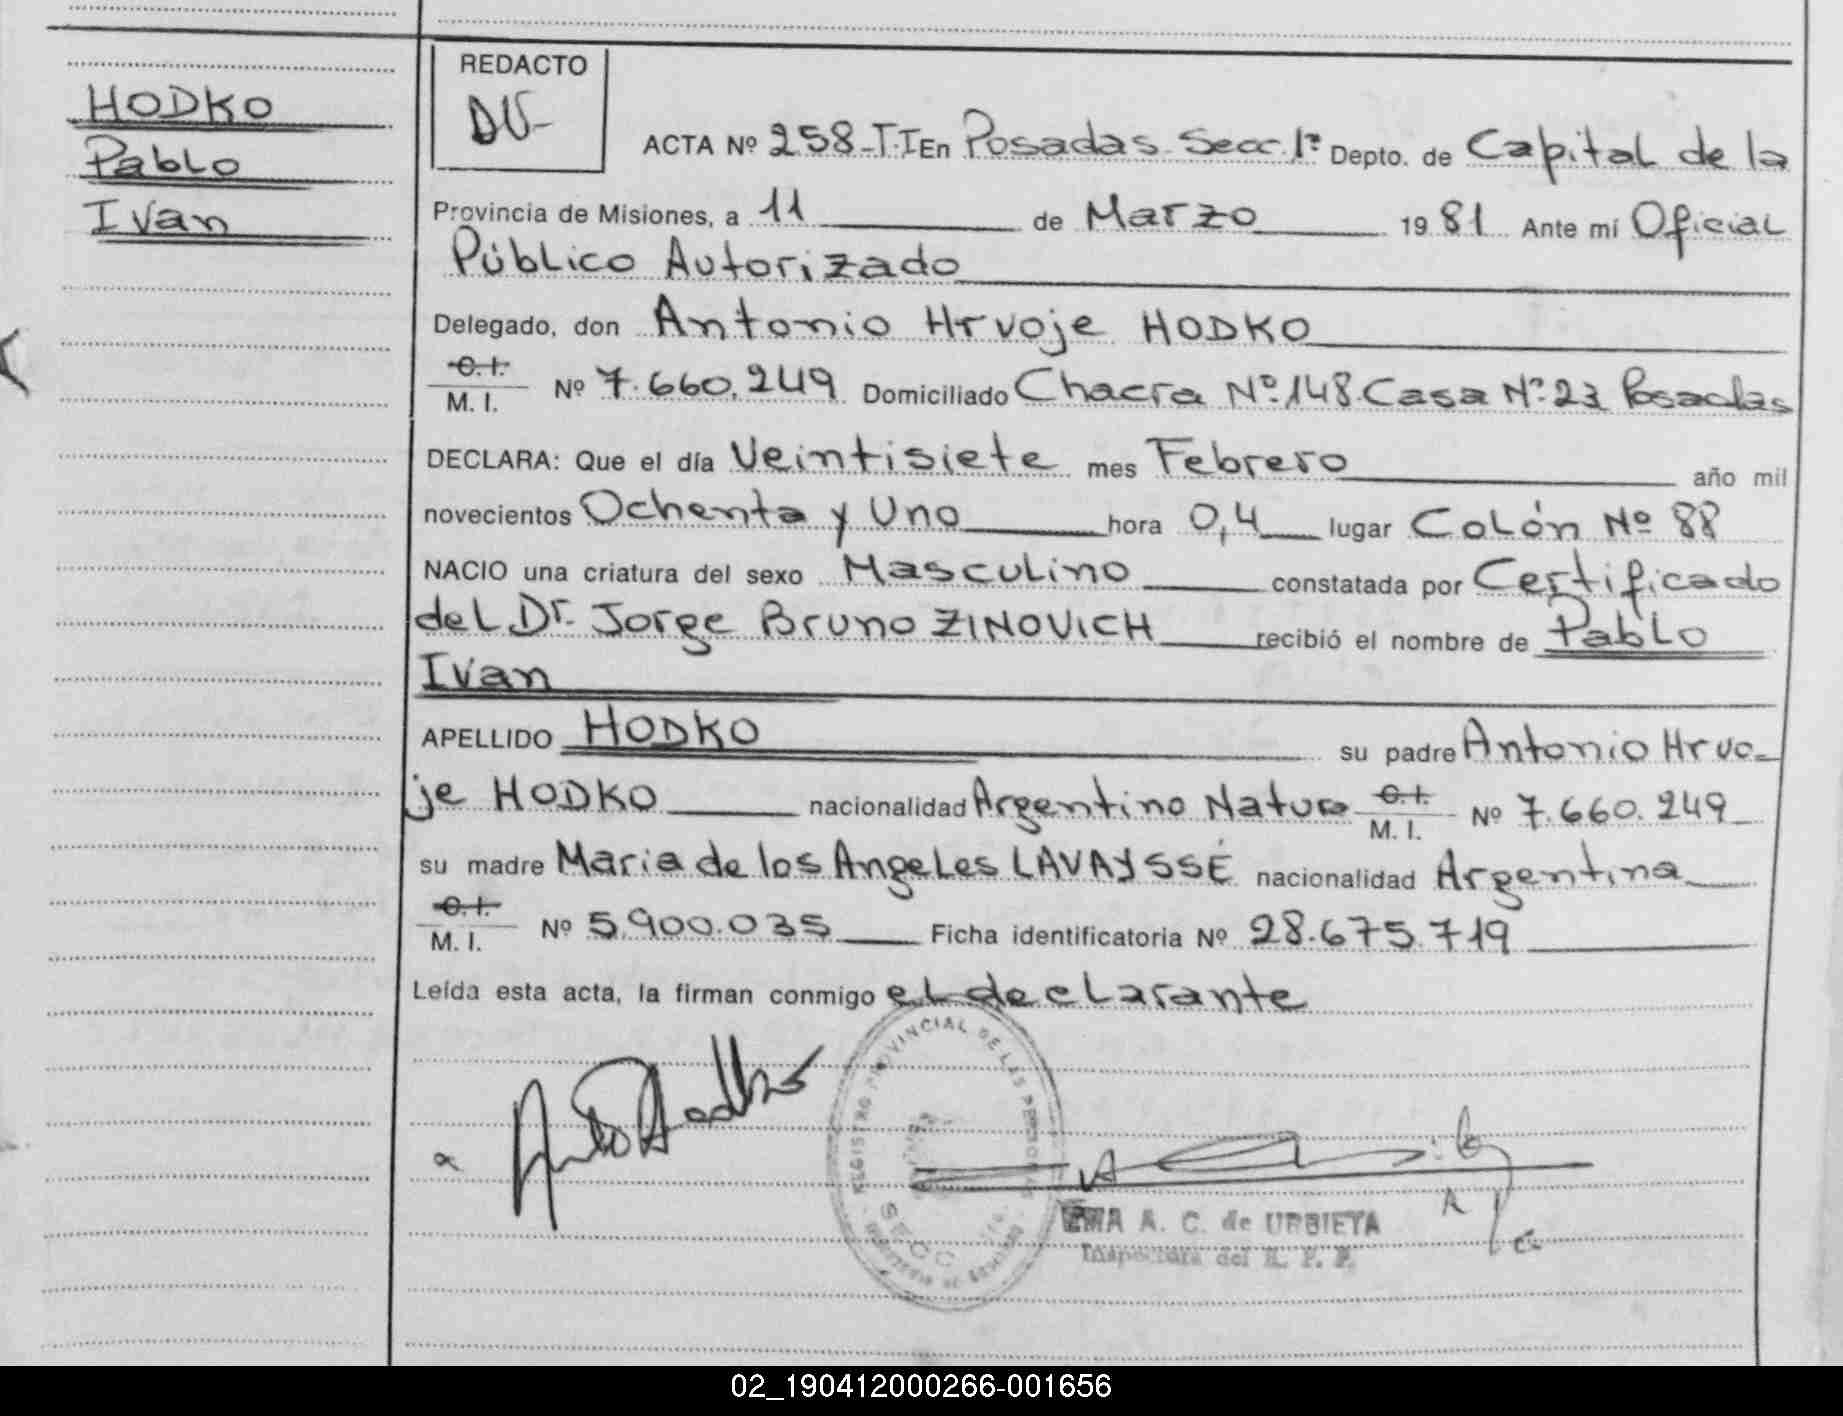 HODKO
Pablo
Ivan
REDACTO
ACTA Nº 258-T.I En Posadas Secc. 1ª Depto. de Capital de la
Provincia de Misiones, a 11 de Marzo 1981 Ante mí Oficial
Público Autorizado
Delegado, don Antonio Hrvoje HODKO
C. I.
M. I. Nº 7.660.249 Domiciliado Chacra Nº 148 Casa Nº 23 Posadas
DECLARA: Que el día Veintisiete mes Febrero año mil
novecientos Ochenta y Uno hora 0,4 lugar Colón Nº 88
NACIO una criatura del sexo Masculino constatada por Certificado
del Dr. Jorge Bruno ZINOVICH recibió el nombre de Pablo
Ivan
APELLIDO HODKO su padre Antonio Hrvo-
je HODKO nacionalidad Argentino Natura C. I. M. I. Nº 7.660.249
su madre Maria de los Angeles LAVAYSSÉ nacionalidad Argentina
C. I.
M. I. Nº 5.900.035 Ficha identificatoria Nº 28.675.719
Leída esta acta, la firman conmigo el declarante
REGISTRO PROVINCIAL DE LAS PERSONAS
SECC
A. C. de URBIETA
Inspectora del R. P. P.
02_190412000266-001656